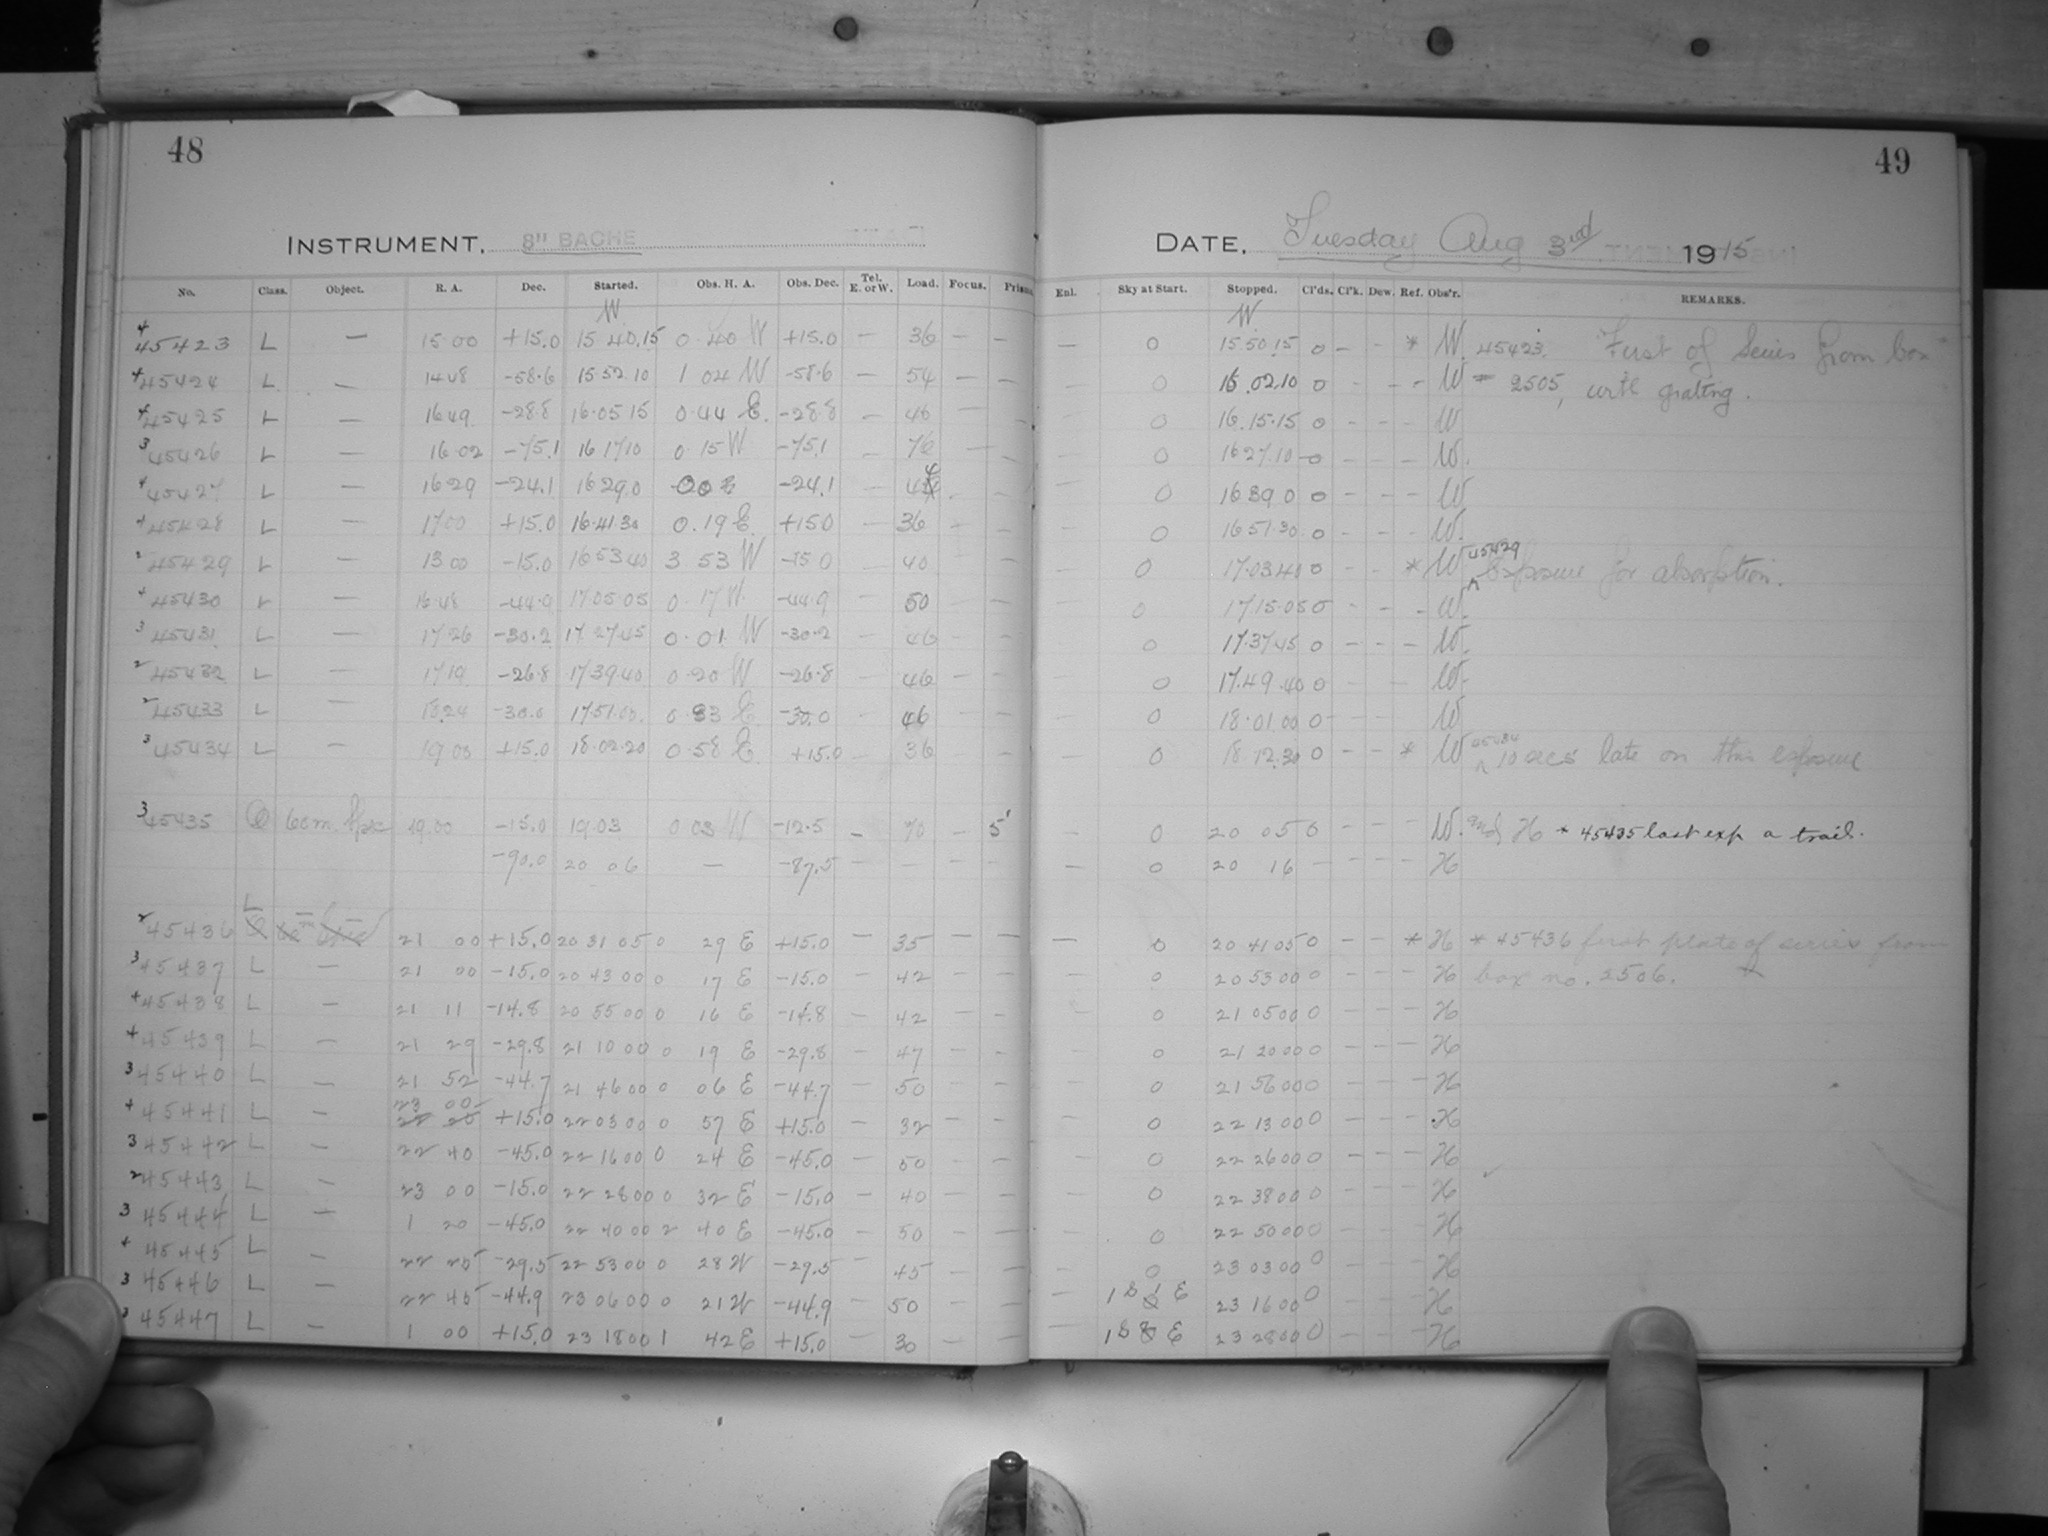 48
49
INSTRUMENT, 8" BACHE
DATE, Tuesday Aug 3rd 1915
No. Class. Object. R. A. Dec. Started. Obs. H. A. Obs. Dec. Tel. E. or W. Load. Focus. Prism. Enl. Sky at Start. Stopped. Cl'ds. Cl'k. Dew. Ref. Obs'r. REMARKS.
W W
4 45423 L — 15 00 +15.0 15 40.15 0 40 W +15.0 — 36 — — — 0 15.50.15 0 - - * W. 45423. First of Series from box
4 45424 L — 14 48 -58.6 15.52.10 1 04 W -58.6 — 54 — — — 0 16.02.10 0 - - - W 2505, with grating.
4 45425 L — 16 49 -28.8 16.05 15 0.44 E. -28.8 — 46 — — — 0 16.15.15 0 - - - W
3 45426 L — 16 02 -75.1 16 17 10 0 15 W -75.1 — 76 — — — 0 16 27.10 0 - - - W.
4 45427 L — 16 29 -24.1 16 29 0 -24.1 — — — — 0 16 39 0 0 - - - W
4 45428 L — 17 00 +15.0 16.41.30 0.19 E +15.0 — 36 — — — 0 16 51.30 0 - - - W.
2 45429 L — 13 00 -15.0 16 53 40 3 53 W -15 0 — 40 — — — 0 17.03 40 0 - - * W 45429 Exposure for absorption.
4 45430 L — 16 48 -44.9 17 05.05 0.17 W -44.9 — 50 — — — 0 17 15.05 0 - - - W.
3 45431 L — 17 26 -30.2 17 27.45 0.01 W -30.2 — 46 — — — 0 17.37 45 0 - - - W.
2 45432 L — 17 19 -26.8 17 39 40 0.20 W -26.8 — 46 — — — 0 17.49.40 0 - - W.
2 45433 L — 18 24 -30.0 17 51.00 0.33 E -30.0 — 46 — — — 0 18.01.00 0 - - - W
3 45434 L — 19 00 +15.0 18.02.20 0.58 E. +15.0 — 36 — — — 0 18 12.30 0 - - * W 45434 10 secs late on this exposure
3 45435 60m. 19.00 -15.0 19.03 0 03 W -12.5 — 70 — 5' — 0 20 05 0 - - - W. and H * 45435 last exp a trail.
-90.0 20 06 — -87.5 — — — — — 0 20 16 - - - - H
L
2 45436 21 00 +15.0 20 31 05 0 29 E +15.0 — 35 — — — 0 20 41 05 0 - - * H * 45436 first plate of series from
3 45437 L — 21 00 -15.0 20 43 00 0 17 E -15.0 — 42 — — — 0 20 53 00 0 - - - H box no. 2506.
4 45438 L — 21 11 -14.8 20 55 00 0 16 E -14.8 — 42 — — — 0 21 05 00 0 - - - H
4 45439 L — 21 29 -29.8 21 10 00 0 19 E -29.8 — 47 — — — 0 21 20 00 0 - - - H
3 45440 L — 21 52 -44.7 21 46 00 0 06 E -44.7 — 50 — — — 0 21 56 00 0 - - - H
23 00
4 45441 L — 22 20 +15.0 22 03 00 0 57 E +15.0 — 32 — — — 0 22 13 00 0 - - - H
3 45442 L — 22 40 -45.0 22 16 00 0 24 E -45.0 — 50 — — — 0 22 26 00 0 - - - H
2 45443 L — 23 00 -15.0 22 28 00 0 32 E -15.0 — 40 — — — 0 22 38 00 0 - - - H
3 45444 L — 1 20 -45.0 22 40 00 2 40 E -45.0 — 50 — — — 0 22 50 00 0 - - - H
4 45445 L — 22 25 -29.5 22 53 00 0 28 W -29.5 — 45 — — — 0 23 03 00 0 - - - H
3 45446 L — 22 45 -44.9 23 06 00 0 21 W -44.9 — 50 — — — 1 S E 23 16 00 0 - - - H
3 45447 L — 1 00 +15.0 23 18 00 1 42 E +15.0 — 30 — — — 1 S E 23 28 00 0 - - - H